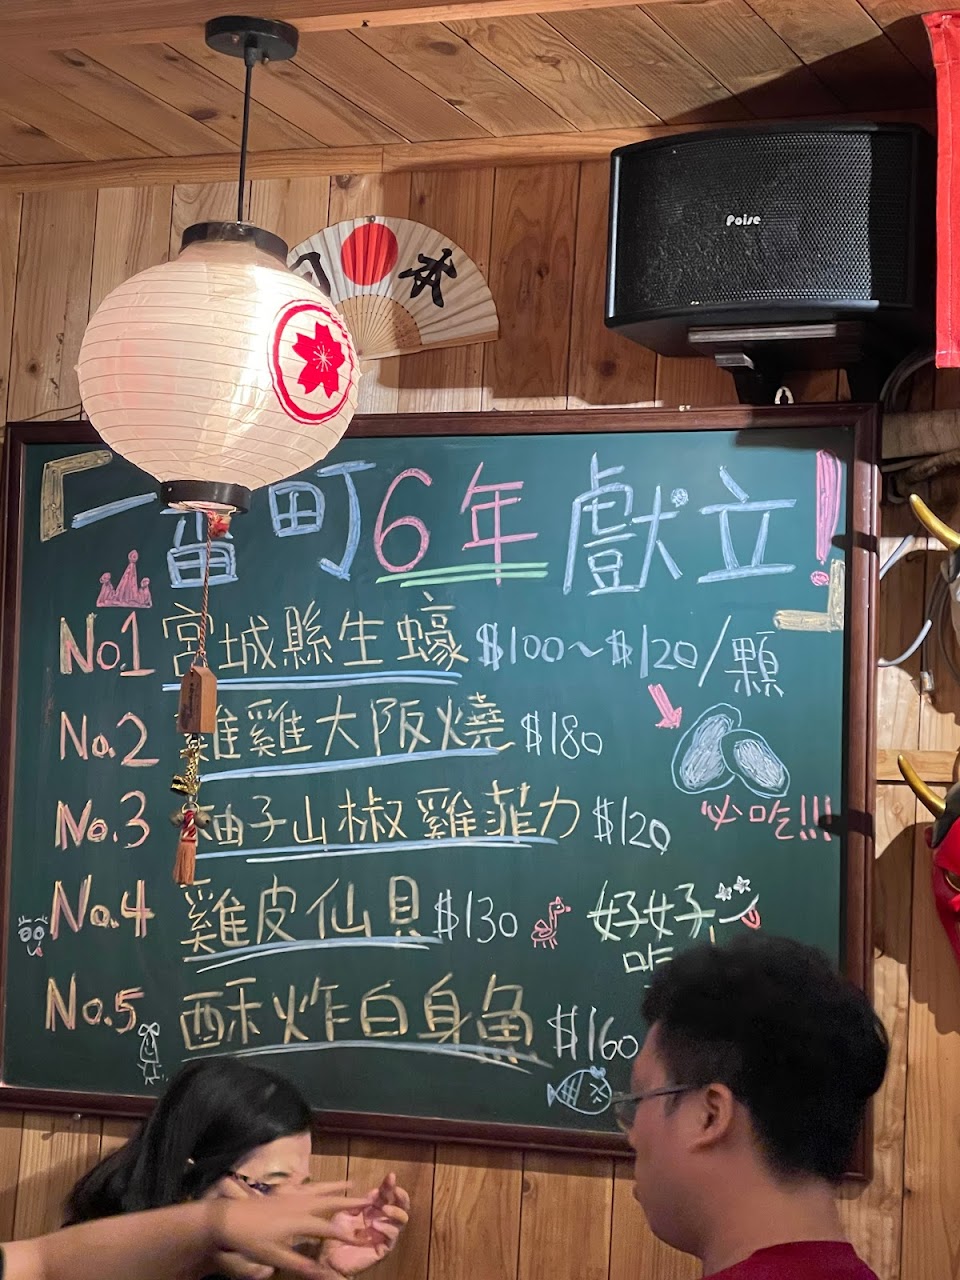 日本
Poise
「一番町6年獻立!」
No.1 宮城縣生蠔 $100~$120/顆
No.2 雞雞大阪燒 $180
No.3 柚子山椒雞菲力 $120
必吃!!!
No.4 雞皮仙貝 $130
好好
吃
No.5 酥炸白身魚 $160